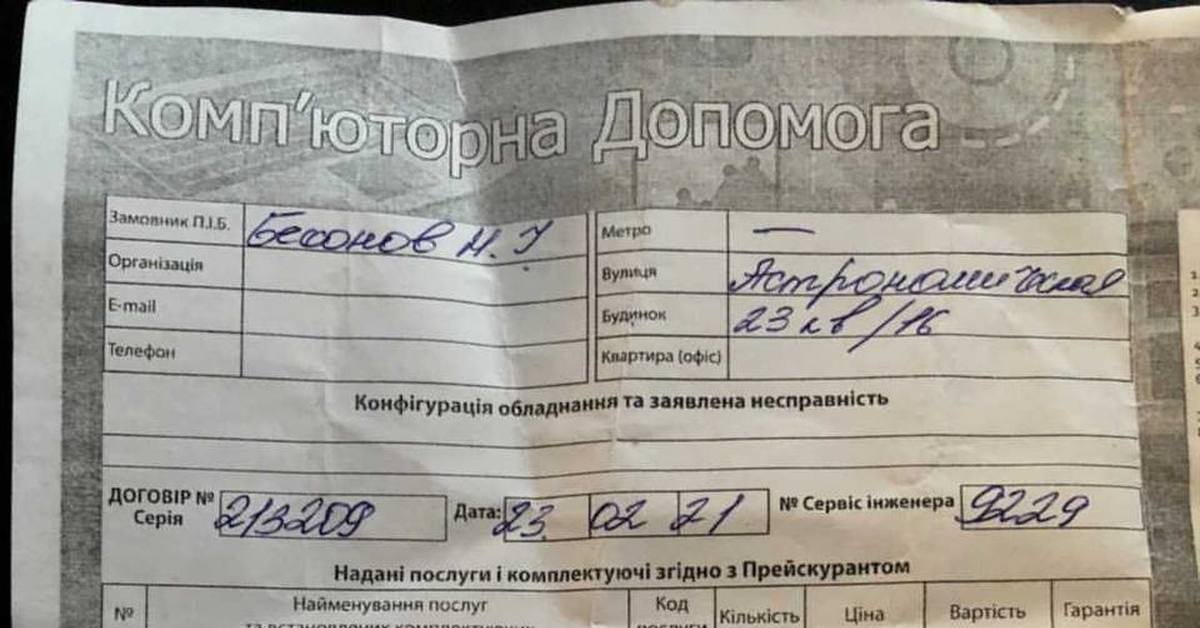 Комп'юторна Допомога
Замовник П.І.Б. Бесонов М. У Метро —
Організація Вулиця Астрономическая
E-mail Будинок 23 кв/16
Телефон Квартира (офіс)
Конфігурація обладнання та заявлена несправність
ДОГОВІР № Серія 213209 Дата: 23. 02 21 № Сервіс інженера 9229
Надані послуги і комплектуючі згідно з Прейскурантом
№ Найменування послуг Код Кількість Ціна Вартість Гарантія